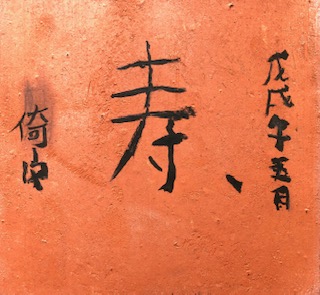 戊戌年五月
寿
倚安